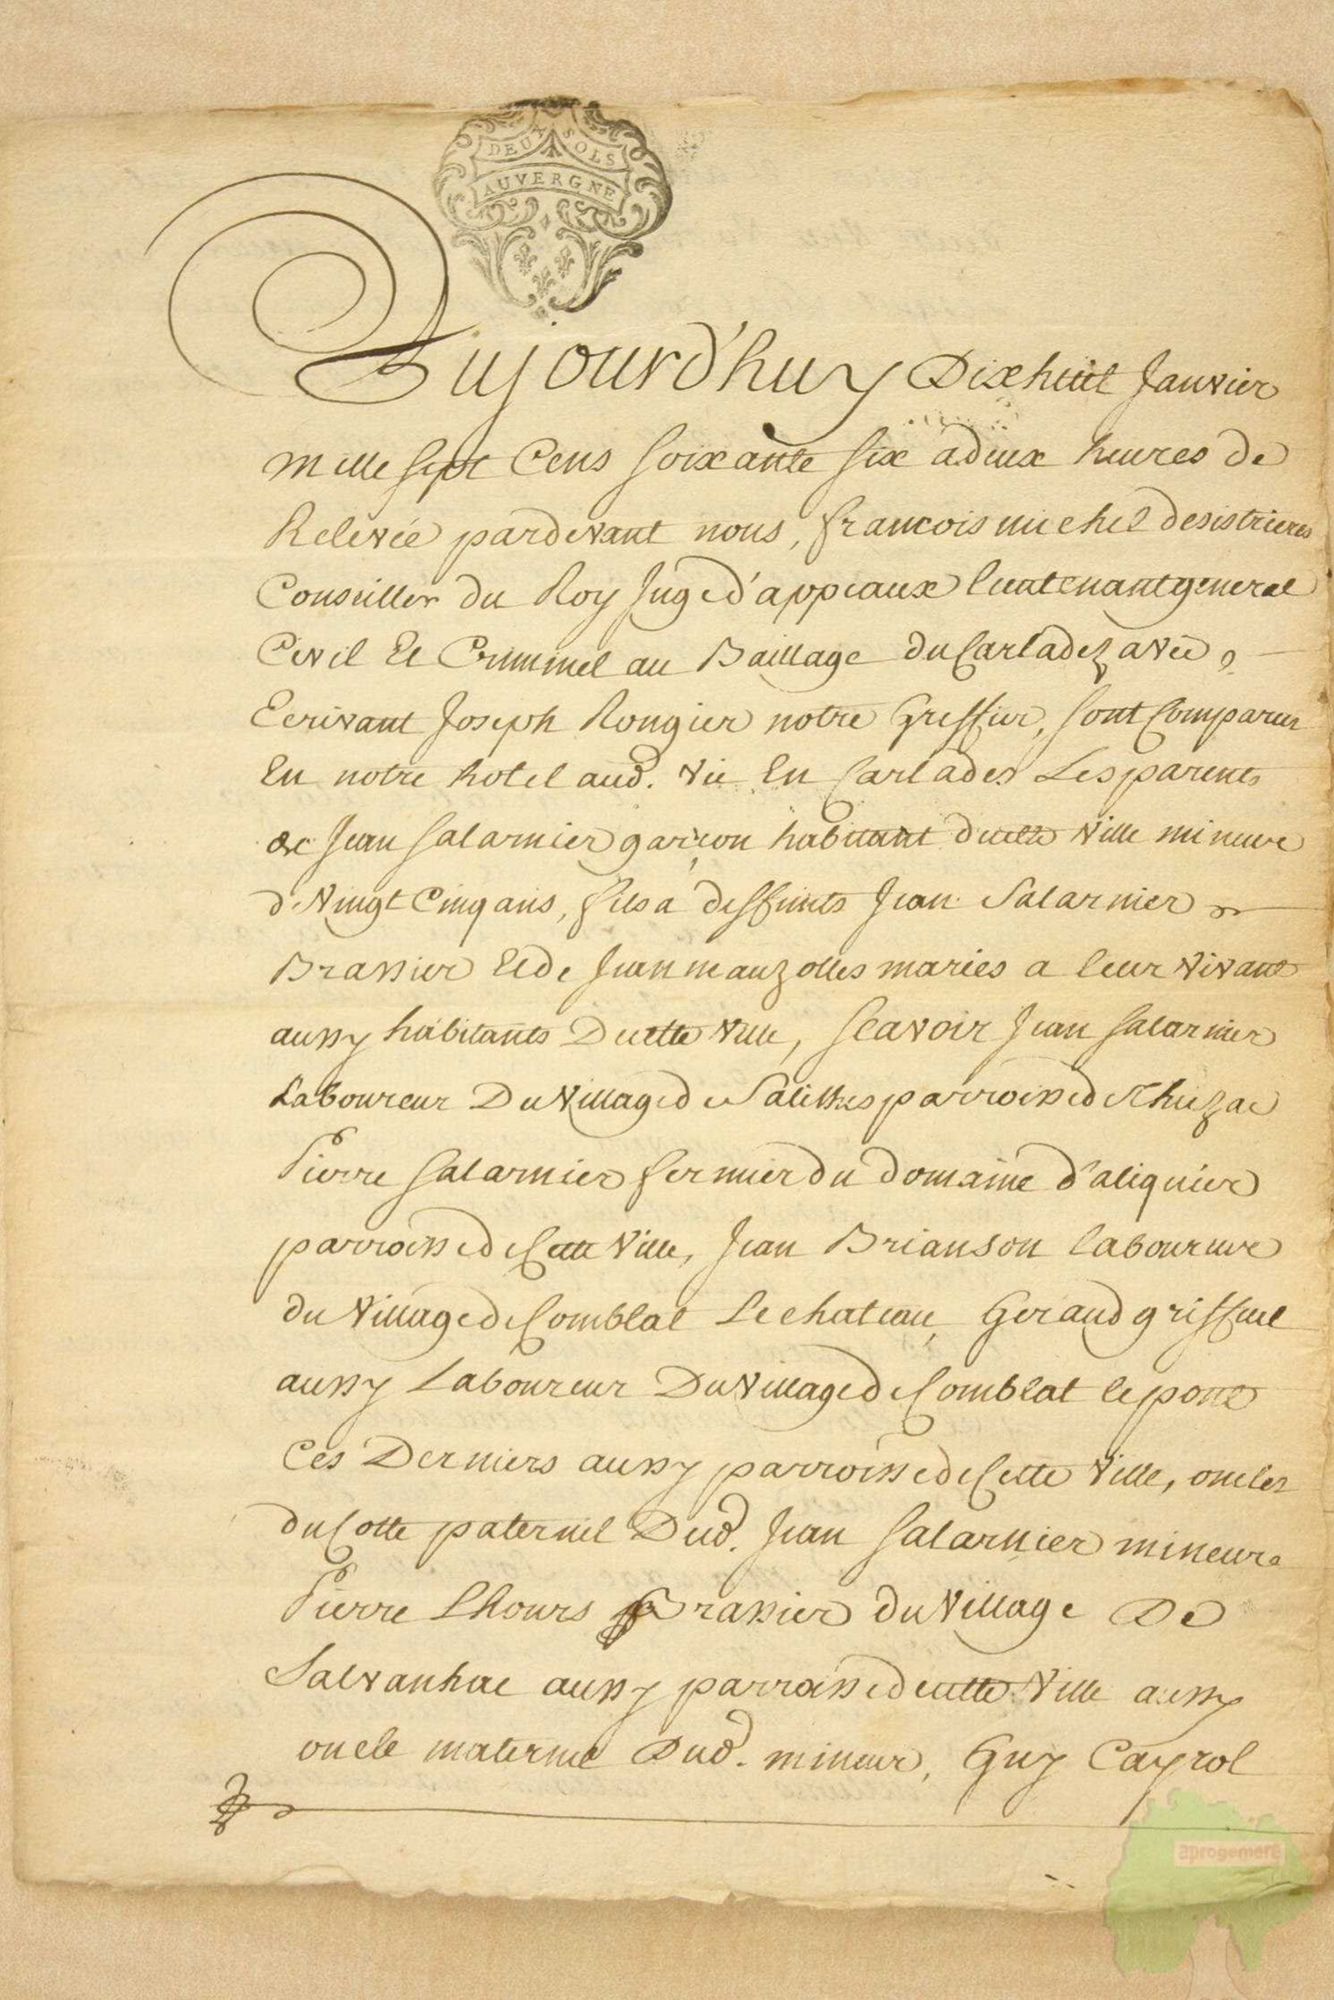 DEUX SOLS
AUVERGNE
Aujourd'huy Dixhuit Janvier
mille sept Cens soixante six a deux heures de
Relevée pardevant nous, francois michel desistrieres
Conseiller du Roy Juge d'appeaux lieutenant general
Civil Et Criminel au Baillage du Carladez a Vic,
Ecrivant Joseph Rongier notre Greffier, sont Comparus
En notre hotel aud. Vic En Carlades Les parents
de Jean Salarnier garçon habitant de cette Ville mineur
d'Vingt Cinq ans, fils a deffunts Jean Salarnier
Brassier Et de Jeanne auzolles mariés a leur Vivant
aussy habitants De cette Ville, Scavoir Jean Salarnier
Laboureur Du Village de Salilhes parroisse de Thiezac
Pierre Salarnier fermier du domaine d'aliquier
parroisse de Cette Ville, Jean Brianson laboureur
du Village de Comblat Le chateau, Geraud griffuel
aussy Laboureur Du Village de Comblat le pont
Ces Derniers aussy parroisse de Cette Ville, oncles
du Cotte paternel Dud. Jean Salarnier mineur
Pierre Lhours Brassier du Village De
Salvanhac aussy parroisse de cette Ville aussy
oncle maternel Dud. mineur, Guy Cayrol
aprogemere